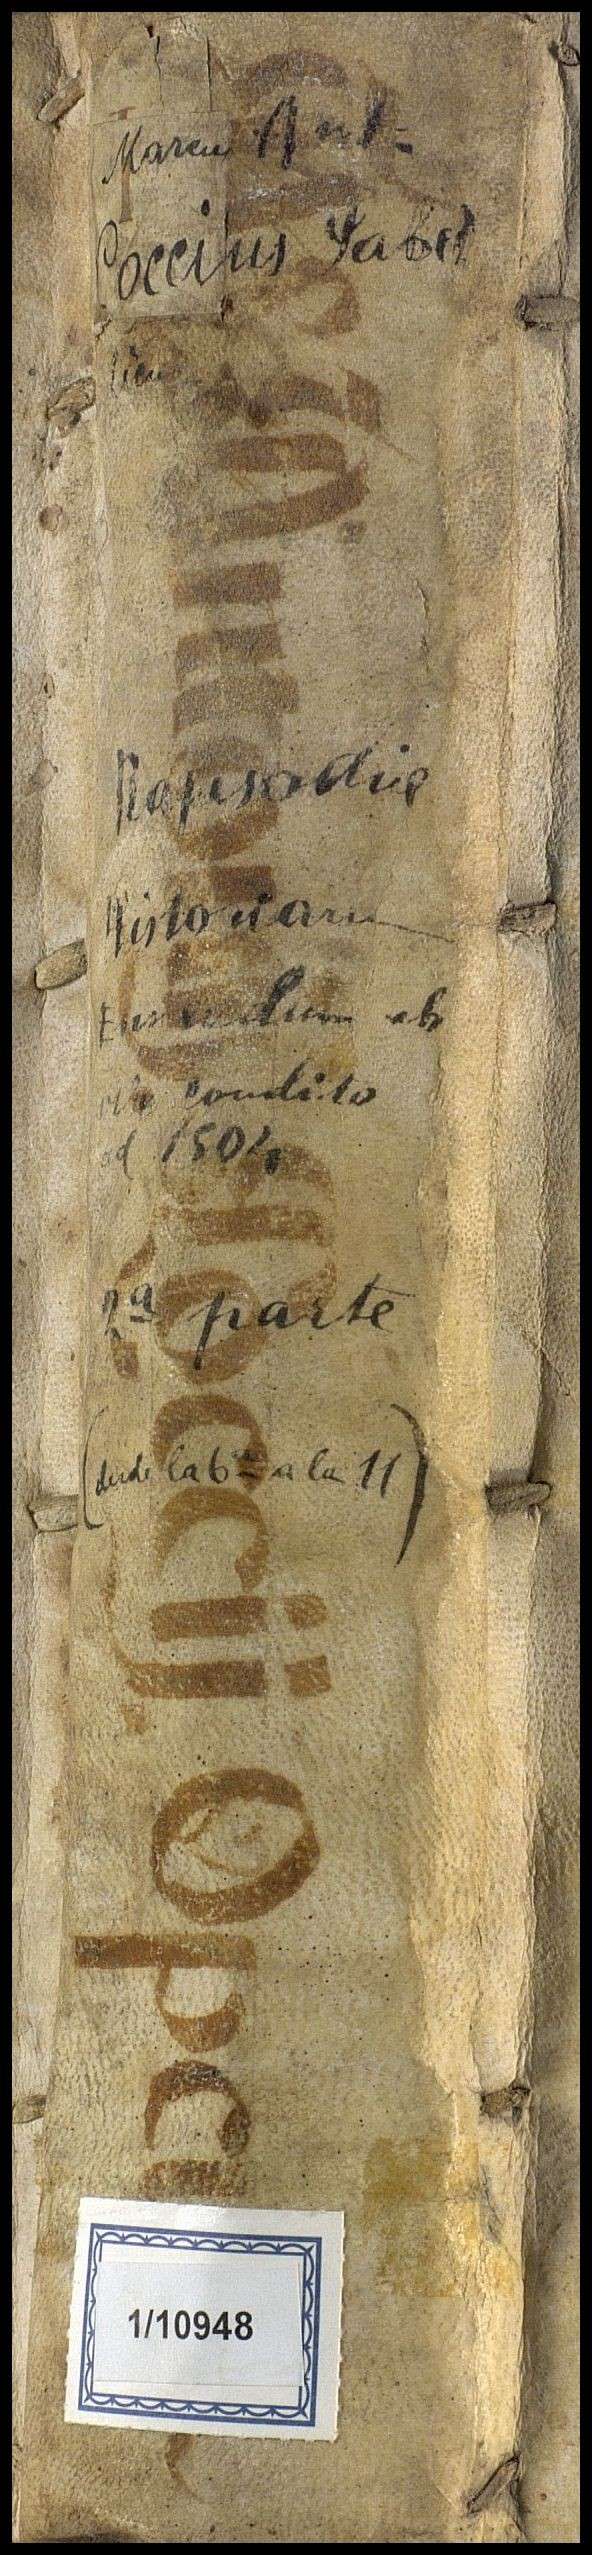 Marcus Ant=
Coccius Sabel
licus
Rapsodiae
Historiarum
Enneadum ab
orbe condito
ad 1504
2ª parte
(desde la 6ª a la 11)
Antonij Coccij Ope
1/10948